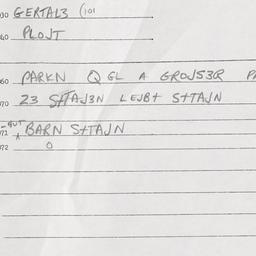 30 GERTAL3 (101
40 PLOJT
60 PARKN Q GL A GROJS3R PA
70 23 StTAJ3N LEJBt StTAJN
71 -BUT BARN StTAJN
72 O